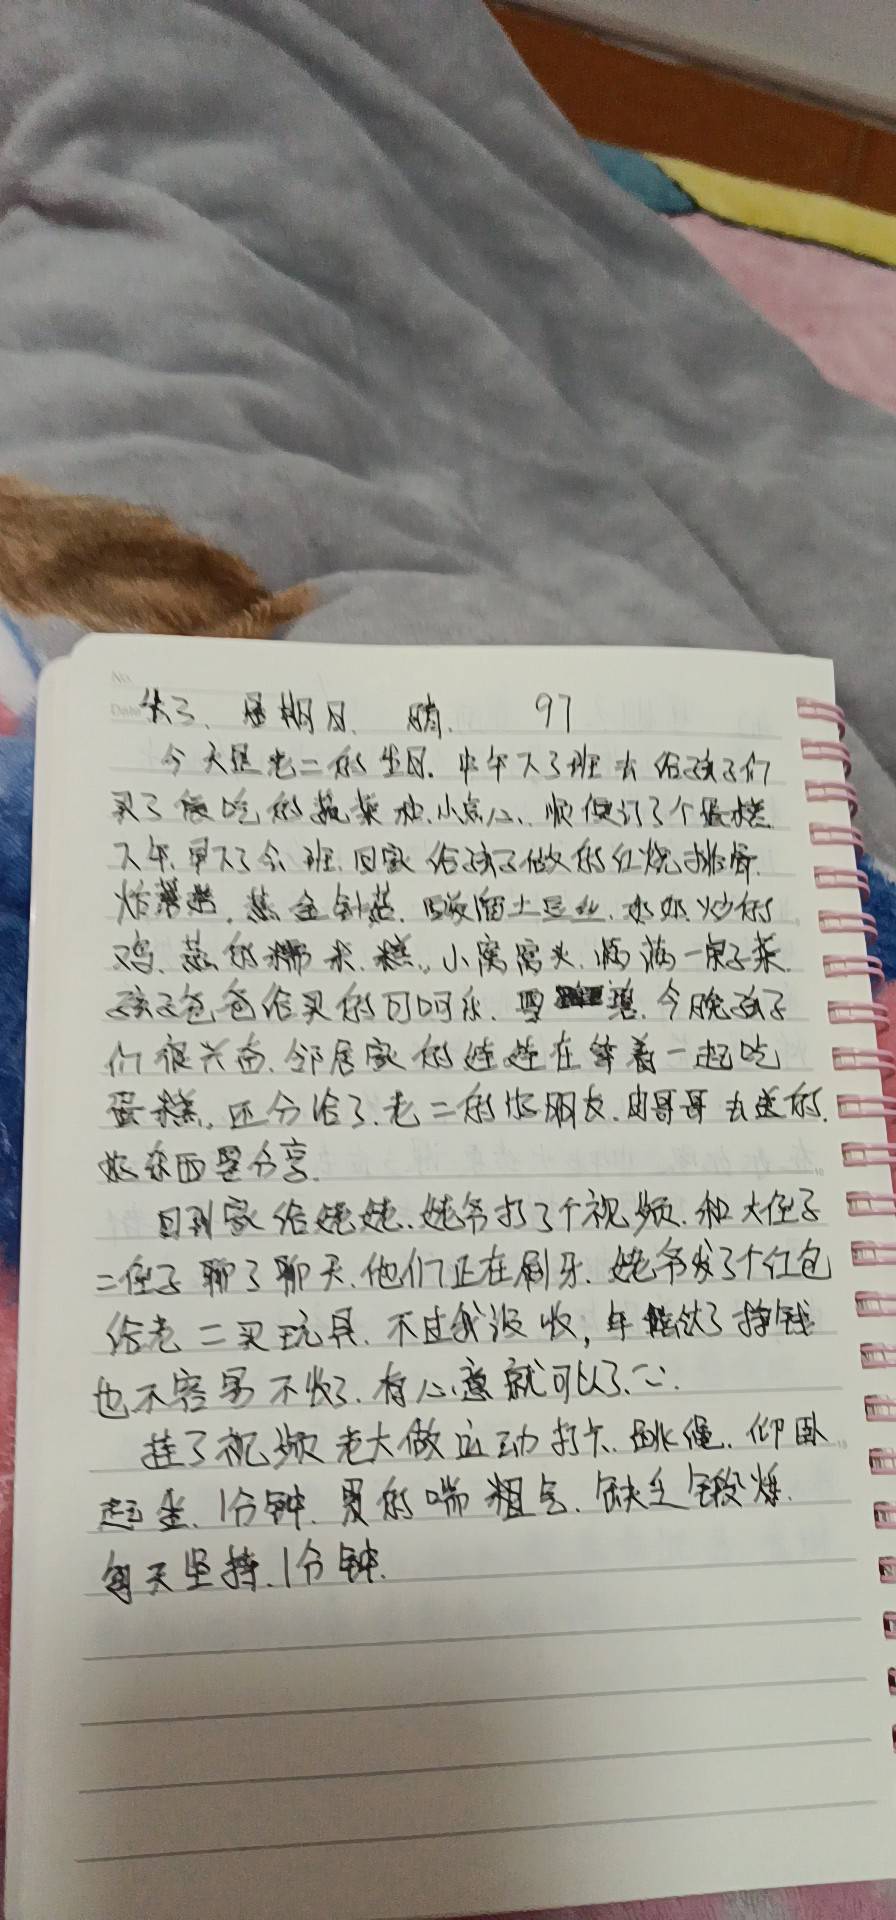 No.
Date
星期日. 晴. 97
今天是老二的生日. 中午下了班去给孩子们
买了爱吃的蔬菜和.小点心、顺便订了个蛋糕.
下午.早下了会班.回家给孩子做的红烧排骨.
炸. 蒸金针菇. 酸溜土豆丝. 奶奶.炒的
鸡.蒸的糯米.糕.小窝窝头.满满一桌子菜.
孩子爸爸给买的可口可乐.雪碧.今晚孩子
们很兴奋.邻居家的娃娃在等着一起吃
蛋糕.还分给了.老二的好朋友.由哥哥去送的.
好东西要分享.
回到家给姥姥.姥爷打了个视频.和大侄子
二侄子聊了聊天.他们正在刷牙.姥爷发了个红包
给老二买玩具.不过我没收,年龄大了挣钱
也不容易不收了.有心意就可以了.
挂了视频老大做运动打卡.跳绳.仰卧
起坐.1分钟.累的喘粗气.缺乏锻炼.
每天坚持.1分钟.